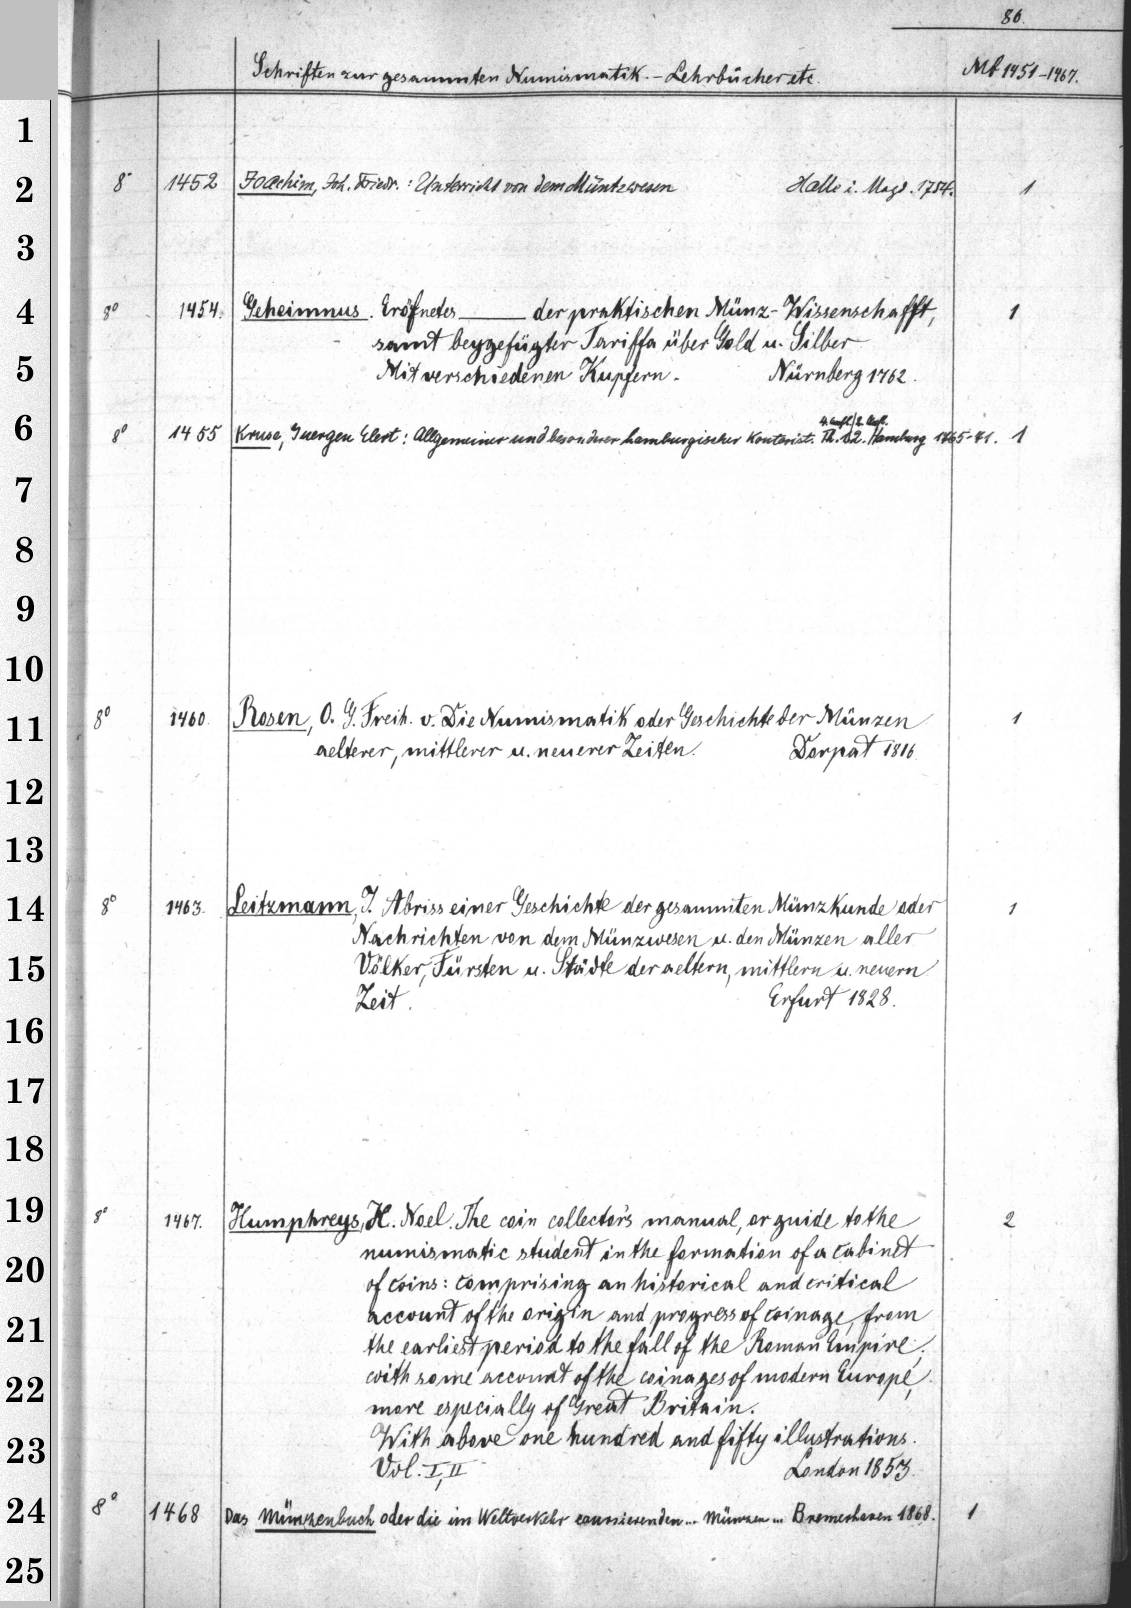 86.
Schriften zur gesammten Numismatik. - Lehrbücher etc. Mb 1451-1467.
1
2 8° 1452 Joachim, Joh. Friedr.: Unterricht von dem Müntzwesen Halle i. Magd. 1754. 1
3
4 8° 1454. Geheimnus. Eröfnetes ——— der praktischen Münz-Wissenschafft, 1
samt beygefügter Tariffa über Gold u. Silber
5 Mit verschiedenen Kupfern. Nürnberg 1762.
4. Aufl. 2. Aufl.
6 8° 1455 Kruse, Juergen Elert: Allgemeiner und besonderer hamburgischer Kontorist. Th. 1.2. Hamburg 1765-71. 1
7
8
9
10
11 8° 1460. Rosen, O. G. Freih. v. Die Numismatik oder Geschichte der Münzen 1
aelterer, mittlerer u. neuerer Zeiten. Dorpat 1816.
12
13
14 8° 1463. Leitzmann, J. Abriss einer Geschichte der gesammten Münzkunde oder 1
Nachrichten von dem Münzwesen u. den Münzen aller
15 Völker, Fürsten u. Städte der aeltern, mittlern u. neuern
Zeit. Erfurt 1828.
16
17
18
19 8° 1467. Humphreys, H. Noel. The coin collector's manual, or guide to the 2
numismatic student in the formation of a cabinet
20 of coins: comprising an historical and critical
account of the origin and progress of coinage, from
21 the earliest period to the fall of the Roman Empire;
22 with some account of the coinages of modern Europe,
more especially of Great Britain.
23 With above one hundred and fifty illustrations.
Vol. I, II London 1853.
24 8° 1468 Das Münzenbuch oder die im Weltverkehr coursierenden... Münzen... Bremerhaven 1868. 1
25